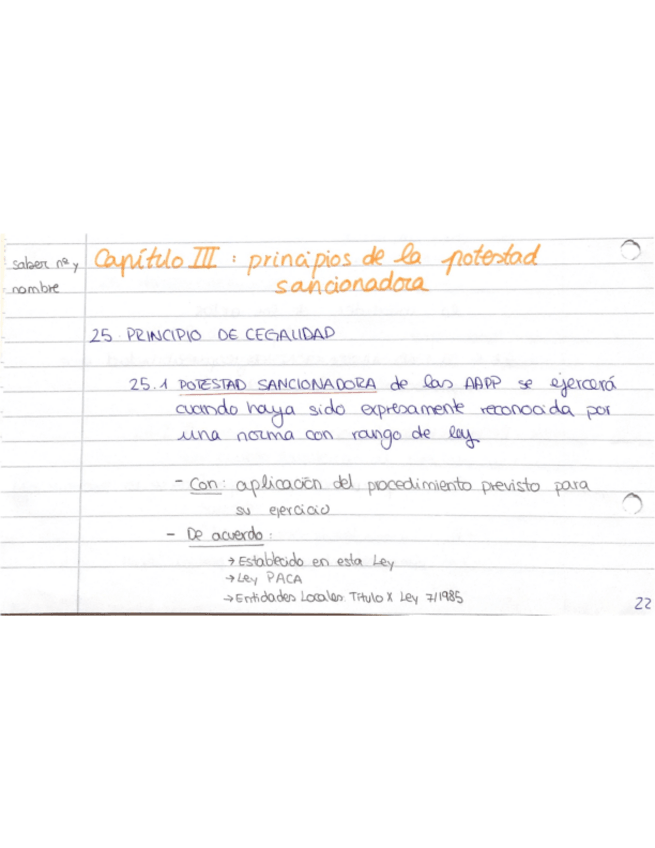 saber nº y
nombre
Capítulo III : principios de la potestad
sancionadora
25. PRINCIPIO DE LEGALIDAD
25.1 POTESTAD SANCIONADORA de las AAPP se ejercerá
cuando haya sido expresamente reconocida por
una norma con rango de ley
- Con: aplicación del procedimiento previsto para
su ejercicio
- De acuerdo:
→ Establecido en esta Ley
→ Ley PACA
→ Entidades Locales Título X Ley 7/1985
22